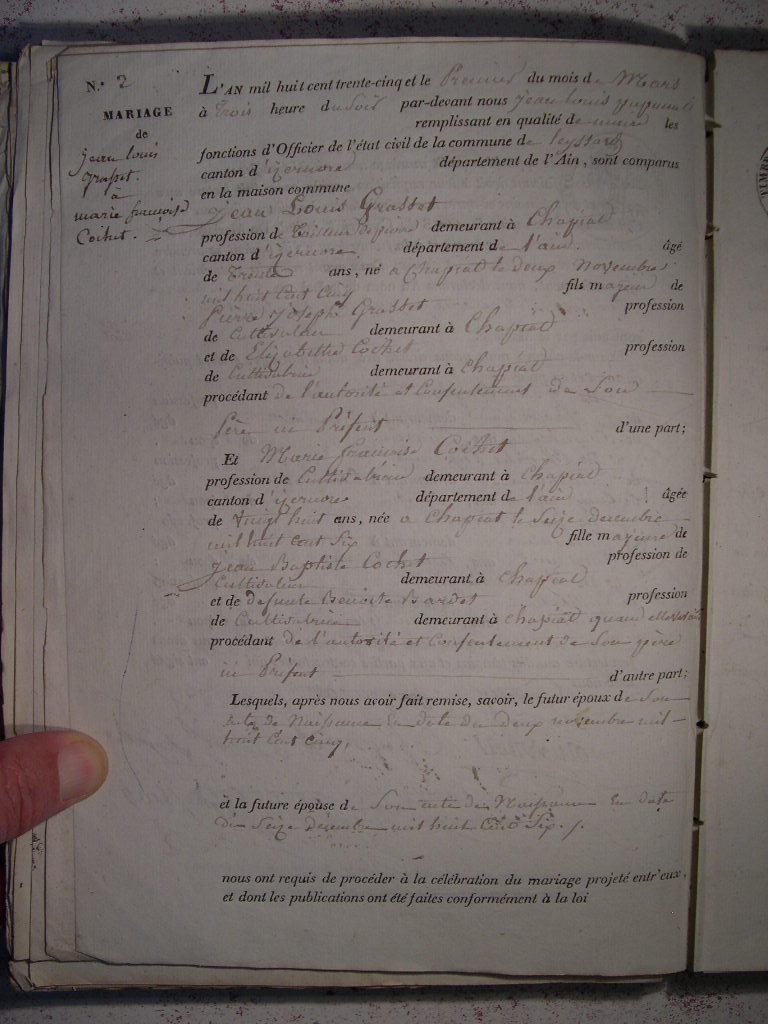 N.º 2
MARIAGE
de
jean louis
grasset.
à
marie françoise
Cochet.
L'AN mil huit cent trente-cinq et le Premier du mois de Mars
à trois heure du soir par-devant nous jean louis
remplissant en qualité de maire les
fonctions d'Officier de l'état civil de la commune de leyssard
canton d'izernore département de l'Ain, sont comparus
en la maison commune
Jean Louis Grasset
profession de tailleur de pierre demeurant à Chapiat
canton d'izernore département de l'ain. âgé
de trente ans, né a Chapiat le deux Novembre
mil huit cent cinq fils majeur de
Pierre Joseph Grasset profession
de Cultivateur demeurant à Chapiat
et de Elizabethe Cochet profession
de Cultivatrice demeurant à Chapiat
procédant de l'autorité et Consentement de Son
père ici Présent d'une part;
Et Marie françoise Cochet
profession de Cultivatrice demeurant à Chapiat
canton d'izernore département de l'ain âgée
de vingt huit ans, née a Chapiat le Seize decembre
mil huit cent Six fille majeure de
jean Baptiste Cochet profession de
Cultivateur demeurant à Chapiat
et de defunte Benoite Bardet profession
de Cultivatrice demeurant à chapiat quand elle vivait
procédant de l'autorité et Consentement de Son père
ici Présent d'autre part;
Lesquels, après nous avoir fait remise, savoir, le futur époux de Son
acte de Naissance En date du deux novembre mil
huit Cent Cinq,
et la future épouse de Son acte de Naissance En date
du Seize décembre mil huit Cent Six.
nous ont requis de procéder à la célébration du mariage projeté entr'eux,
et dont les publications ont été faites conformément à la loi
TIMBRE